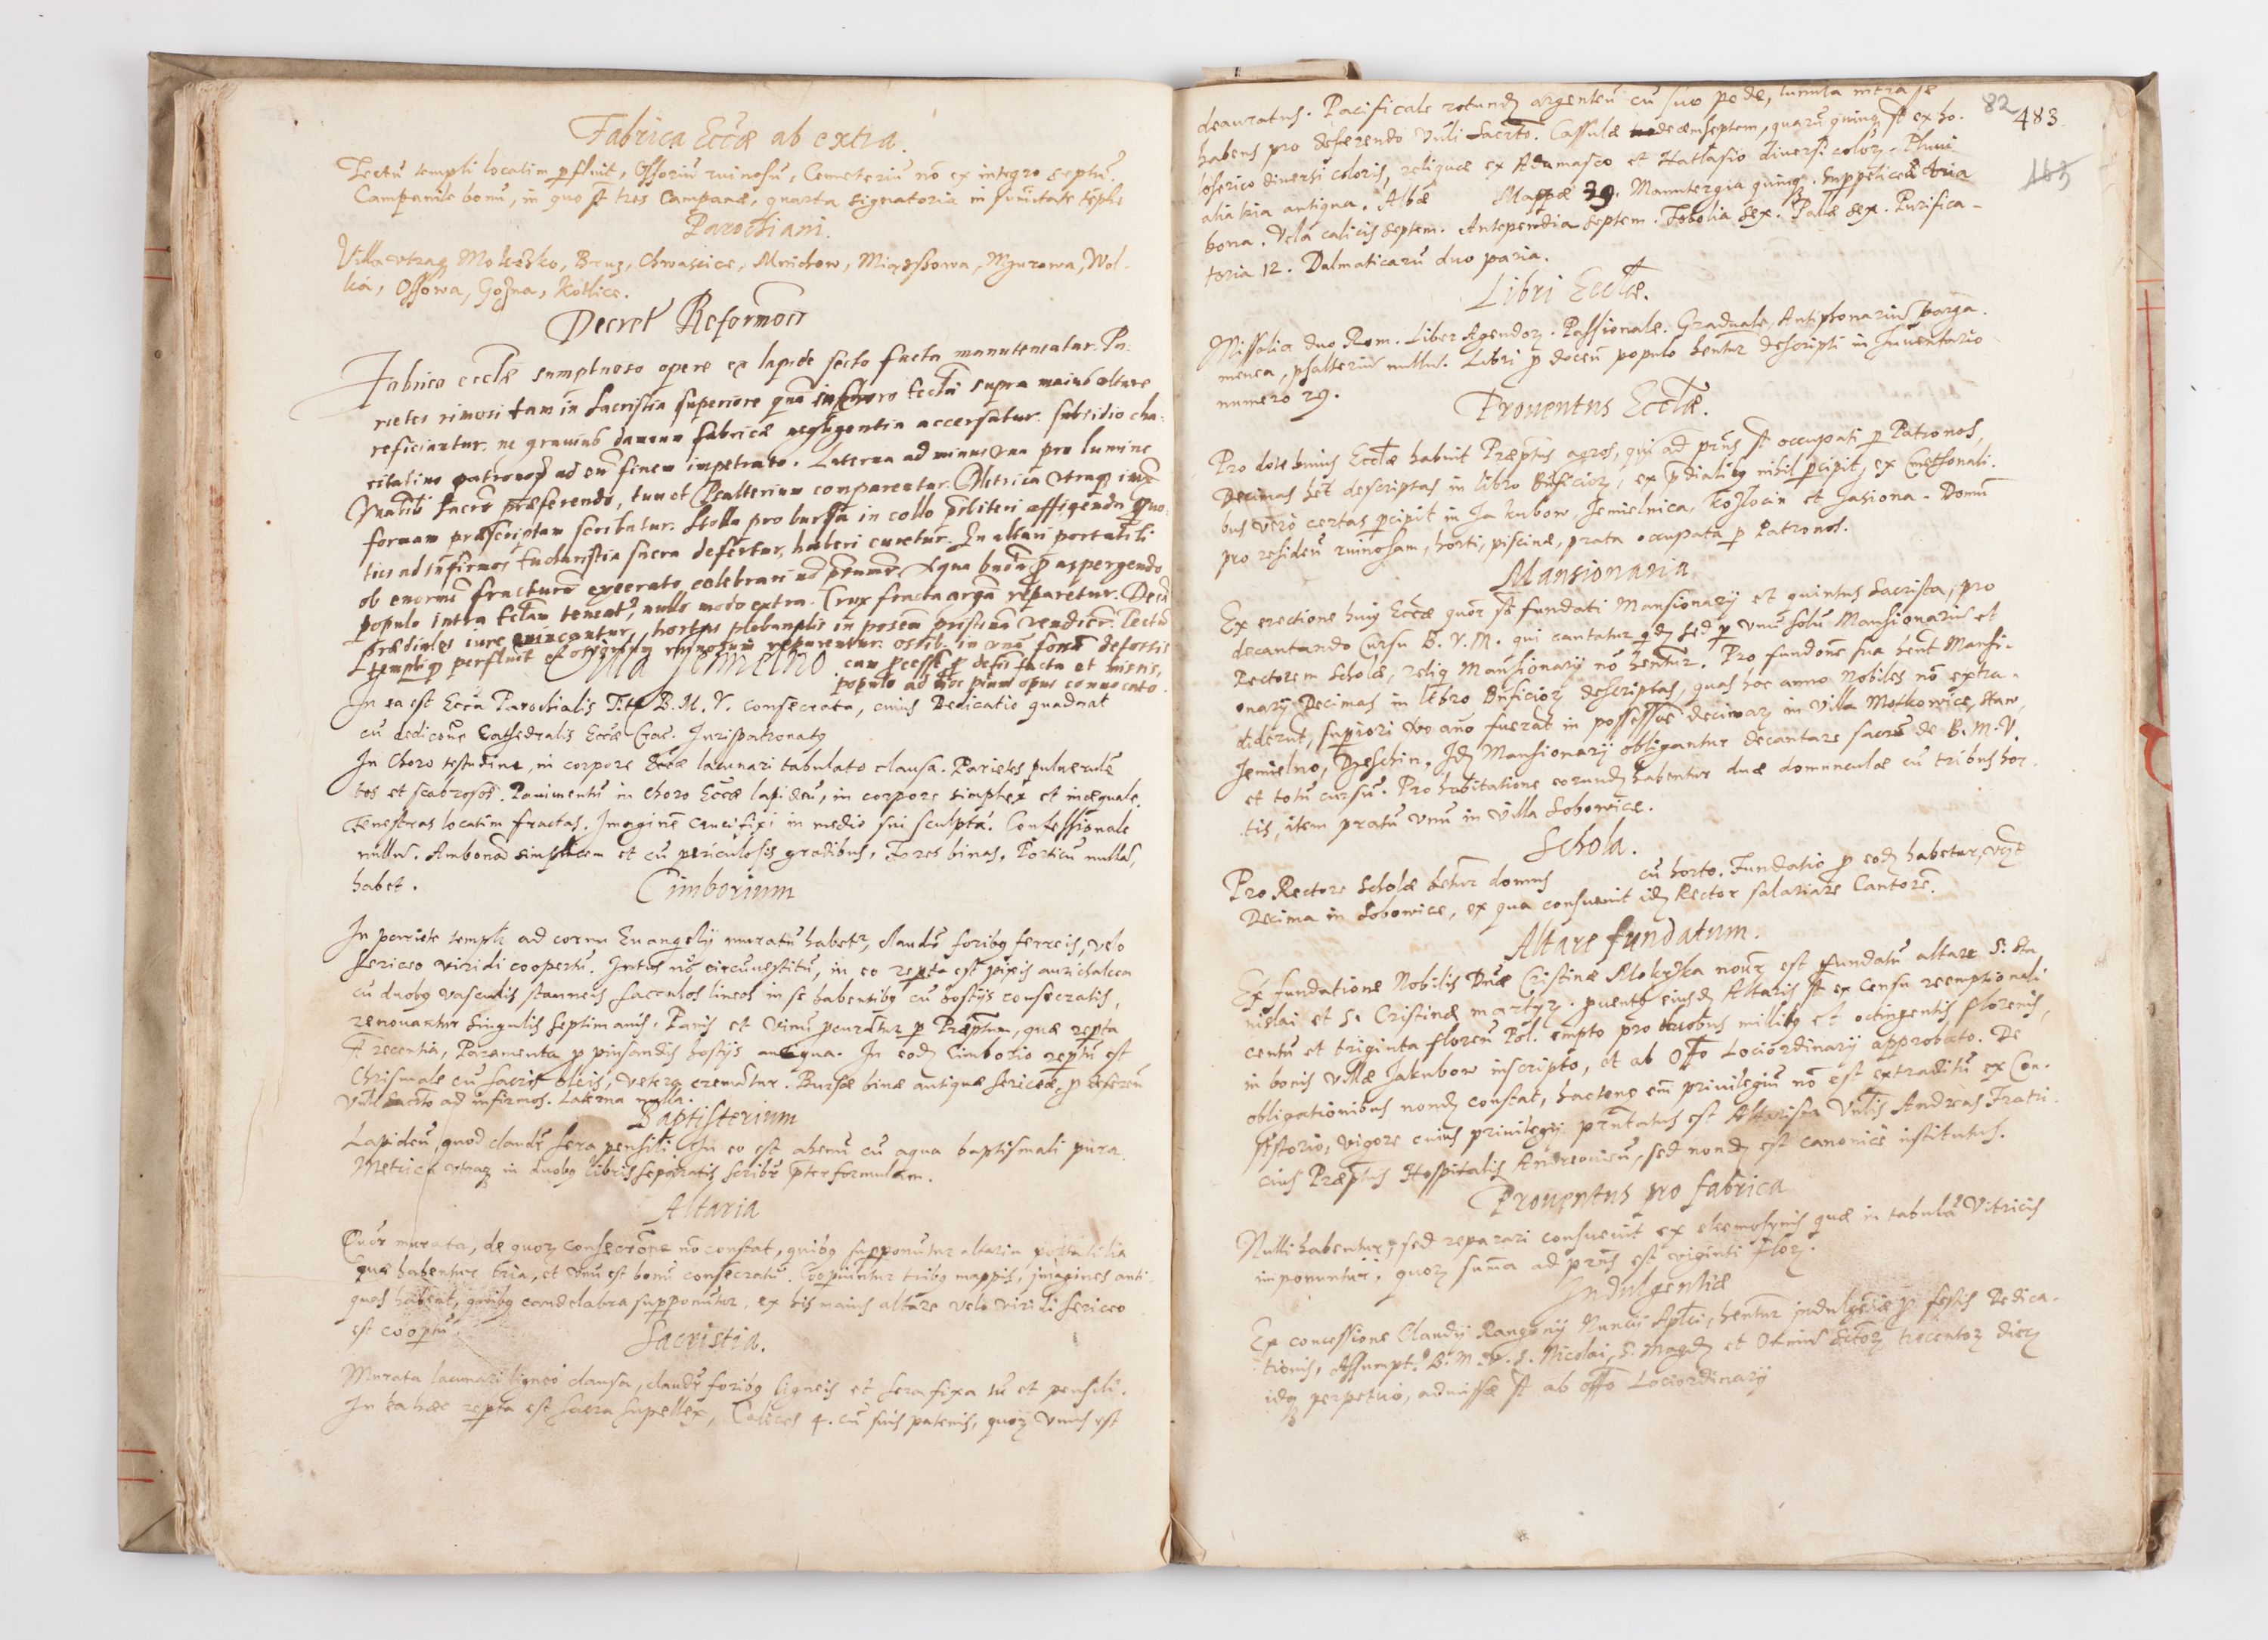 Fabrica Eccæ ab extra.
Tectū templi locatim pfluit, Ossoriū ruinosū, Cemeteriū nō ex integro septū.
Campanile bonū, in quo st tres Campanæ, quarta signatoria in sumitate
Parochiani.
Villa utraq Mokrzko, Brus, Chwascice, Mnichow, Miąrssowa, Mzurowa, Wol-
ka, Ossowa, Gozna, Kotlice.
Decret Reformoīs
Fabrica eccłæ sumptuoso opere ex lapide secto facta manuteneatur. Pa-
rietes rimosi tam in Sacristia superiore quā in choro tecta supra maius altare
reficiantur. ne gravius damnum fabricæ negligentia accersatur. subsidio cha-
ritativo patronoȝ ad eū finem impetrato. Laterna ad minus una pro lumine
Vnalibi Sacrō præferendo, tum et Psalterium comparentur. Metrica utraq iuxᵃ
formam præscriptam scribatur. Stolla pro bursa in collo prsbiteri affigenda quo-
ties ad infirmos Eucharistia sacra defertur, haberi curetur. In altari portatili
ob enormē fracturā execrato, celebrari nō pmitt. Aqua bndta p aspergendo
populo intra ecłam teneat, nullo modo extra. Crux fracta argā reparetur. Decī
prædiales iure evincantur, hortus plebanalis in possem pristinā vendicr. Tectū
templiq perfluit et ossorium ruinosum reparentur. ossib. in unā foveā defossis
Villa Jemielno cum pcessē p defūctis facta et missis,
populo ad hoc pium opus convocato.
In ea est Ecca Parochialis Titł B. M. V. consecrata, cuius Dedicatio quadrat
cū dedicoñe Cathedralis Eccæ Crac. Jurispatronatq
In Choro testudine, in corpore Eccæ lacunari tabulato clausa. Parietes pulverulē
tos et scabrosos. Pavimentū in choro Eccæ lapideū, in corpore simplex et inæquale.
Fenestras locatim fractas. Imaginē crucifixi in medio sui sculptā. Confessionale
nullū. Ambonā simplicem et cū periculosis gradibus, Fores binas, Porticū nullā,
habet.
Cimborium
In pariete templi ad cornu Evangelij muratū habetr, claudr foribq ferreis, velo
sericeo viridi coopertū. Intus nō circuvestitū, in eo repta est pixis aurichalcea
cū duobq vasculis stanneis sacculos lineos in se habentibq cū hostijs consecratis,
renovantur singulis septimanis. Panis et vinū pcurātur p Præptum, quæ repta
st recentia, Paramenta p pinsandis hostijs antiqua. In eodȝ Cimborio reptū est
Chrismale cū sacris oleis, vetera cremātur. Bursæ binæ antiquæ sericeæ, p deferen
Vnli Sacrto ad infirmos. Laterna nulla.
Baptisterium
Lapideū, quod claudr sera pensili. In eo est ahenū cū aqua baptismali pura.
Metrica utraq in duobq libris separatis scribr pter formulam.
Altaria
Quōr murata, de quoȝ consecrōne nō constat, quibq supponūtur altaria portatilia
quæ habentur tria, et unū est bonū consecratū. Cooperiuntur tribq mappis, imagines anti-
quas habent, quibq candelabra supponūtur, ex his maius altare velo viridi sericeo
est cooptū.
Sacristia.
Murata lacunari ligneo clausa, claudr foribq ligneis et sera fixa tū et pensili.
In ea hæc repta est sacra supellex, Calices 4. cū suis patenis, quoȝ unus est
82 483
483
deauratus. Pacificale rotundȝ argenteū cū suo pede, lunula intra se
habens pro deferendo Vnli Sacrto. Cassulæ decemseptem, quarū quinq st ex ho-
loserico diversi coloris, reliquæ ex Adamasco et Hatlasio diversi coloȝ. Pluvi
alia tria antiqua. Albæ Mappæ 29. Manutergia quinq. Suppelliceæ tria
bona. Vela calicis septem. Antependia septem. Tobolia sex. Pallæ sex. Purifica-
toria 12. Dalmaticarū duo paria.
Libri Ecctæ.
Missalia duo Rom. Liber Agendoȝ. Passionale. Graduale, Antiphonariū parga-
menea, psalteriū nullū. Libri p docen populo hentur descripti in Inventario
numero 29.
Proventus Ecctæ.
Pro dote huius Ecctæ habuit Præptus agros, qui ad prns st occupati p Patronos,
Decimas het descriptas in libro Bnficioȝ, ex pdialibq nihil pcipit, ex Cmethonali-
bus vero certas pcipit in Jakubow, Jemielnica, Kozlocin et Jasiona. Domū
pro residen ruinosam, horti, piscinæ, prata occupata p Patronos.
Mansionaria
Ex erectione huiq Eccæ quōr st fundati Mansionarij et quintus Sacrista, pro
decantando Cursu B. V. M. qui cantatur qdȝ sed p unū solū Mansionariū et
Rectorem Scholæ, reliq Mansionarij nō hentur. Pro fundone sua hent Mansi-
onarij Decimas in libro Bnficioȝ descriptas, quas hoc anno Nobiles nō extra-
diderūt, supiori vero año fuerāt in possessioē decimaȝ in villa Motkowice,
Jemielno, Deschin. Idȝ Mansionarij obligantur decantare sacrū de B. M. V.
et totū cursū. Pro habitatione eorundȝ habentur duæ domunculæ cū tribus hor-
tis, item pratū unū in villa Sobowice.
Schola.
Pro Rectore Scholæ hetur domus cū horto. Fundatio p eodȝ habetur, vrȝt
Decima in Sobowice, ex qua consuevit idȝ Rector salariare Cantorē.
Altare fundatum.
Ex fundatione Nobilis Dnæ Cristinæ Mokrzka nouȝ est fundatū altare S. Sta
nislai et S. Cristinæ martyȝ. pventq eiusdȝ Altaris st ex Censu reemptionali
centū et triginta florenū Pol. empto pro duobus millibq et octingentis florenis,
in bonis villæ Jakubow inscripto, et ab Offo Lociordinarij approbato. De
obligationibus nondȝ constat, hactenq em̄ privilegiū nō est extraditū ex Con-
sistorio, vigore cuius privilegij prntatus est Altarista Vnlis Andreas Fratri-
cius Præptus Hospitalis Andreovien, sed nondȝ est canonice institutus.
Proventus pro fabrica
Nulli habentur, sed reparari consuevit ex eleemosynis quæ in tabulā Vitricis
imponuntur, quoȝ summa ad prns est viginti floȝ.
Indulgentiæ
Ex concessione Claudij Rangonij Nuncij Aplci, hentur indulgētiæ p festis Dedica-
tionis, Assumpt. B. M. V. S. Nicolai, S. Magdȝ et Omniū Sctoȝ trecentoȝ dieȝ
idq perpetuo, admissæ st ab offo Lociordinarij